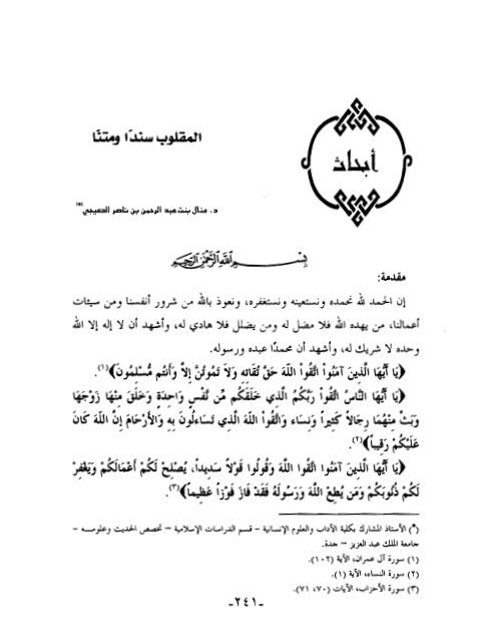 أبحاث
المقلوب سندًا ومتنًا
د. منال بنت عبد الرحمن بن ناصر الدعيجي(*)
بسم الله الرحمن الرحيم
مقدمة:
إن الحمد لله نحمده ونستعينه ونستغفره، ونعوذ بالله من شرور أنفسنا ومن سيئات
أعمالنا، من يهده الله فلا مضل له ومن يضلل فلا هادي له، وأشهد أن لا إله إلا الله
وحده لا شريك له، وأشهد أن محمدًا عبده ورسوله.
﴿يَا أَيُّهَا الَّذِينَ آمَنُوا اتَّقُوا اللَّهَ حَقَّ تُقَاتِهِ وَلاَ تَمُوتُنَّ إِلاَّ وَأَنتُم مُّسْلِمُونَ﴾(١).
﴿يَا أَيُّهَا النَّاسُ اتَّقُوا رَبَّكُمُ الَّذِي خَلَقَكُم مِّن نَّفْسٍ وَاحِدَةٍ وَخَلَقَ مِنْهَا زَوْجَهَا
وَبَثَّ مِنْهُمَا رِجَالاً كَثِيراً وَنِسَاء وَاتَّقُوا اللَّهَ الَّذِي تَسَاءلُونَ بِهِ وَالأَرْحَامَ إِنَّ اللَّهَ كَانَ
عَلَيْكُمْ رَقِيباً﴾(٢).
﴿يَا أَيُّهَا الَّذِينَ آمَنُوا اتَّقُوا اللَّهَ وَقُولُوا قَوْلاً سَدِيداً، يُصْلِحْ لَكُمْ أَعْمَالَكُمْ وَيَغْفِرْ
لَكُمْ ذُنُوبَكُمْ وَمَن يُطِعْ اللَّهَ وَرَسُولَهُ فَقَدْ فَازَ فَوْزاً عَظِيماً﴾(٣).
(*) الأستاذ المشارك بكلية الآداب والعلوم الإنسانية – قسم الدراسات الإسلامية – تخصص الحديث وعلومه –
جامعة الملك عبد العزيز – جدة.
(١) سورة آل عمران، الآية (١٠٢).
(٢) سورة النساء، الآية (١).
(٣) سورة الأحزاب، الآيات (٧٠، ٧١).
-٢٤١-